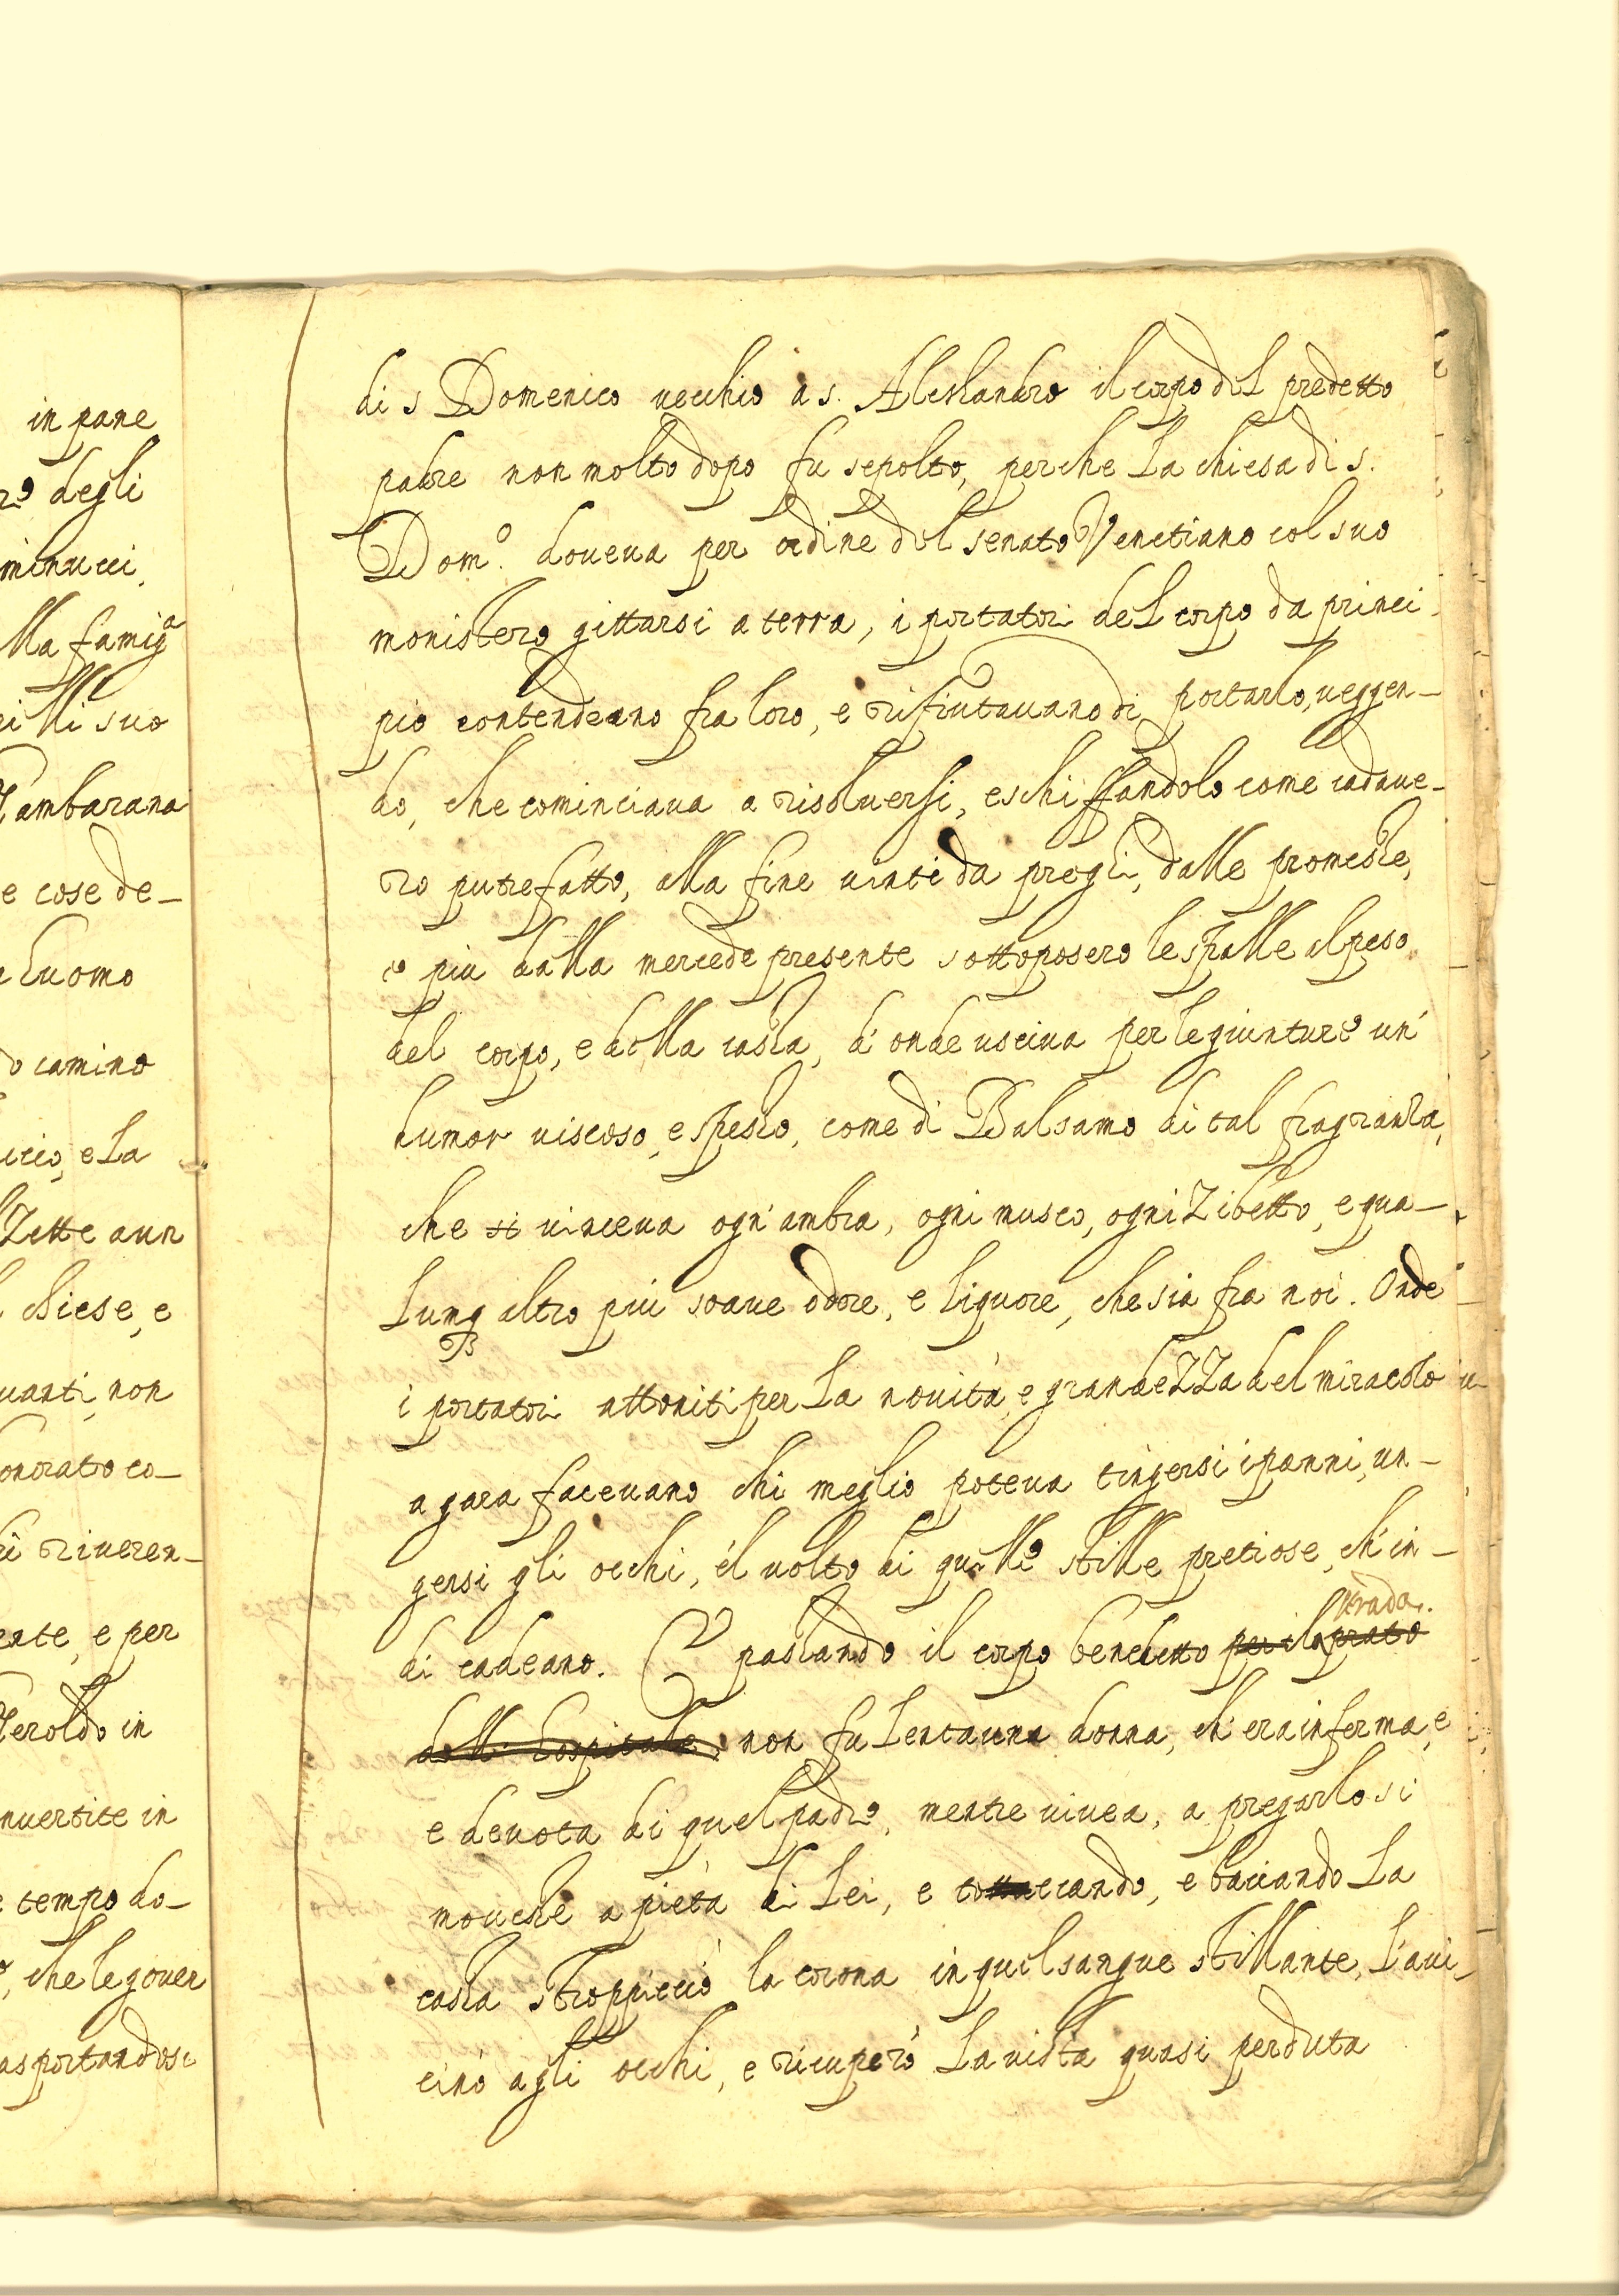 in pane
degli
minucci.
lla famig.a
suo
Tambarana
e cose de-
huomo
camino
e la
Zette aur
chiese, e
uanti, non
onorato co-
riueren-
e per
Teroldo in
nuertite in
tempo do-
che le gouer
asportandosi
di s Domenico uecchio a s. Alessandro il corpo del predetto
padre non molto dopo fu sepolto, perche la chiesa di s.
Dom.o doueua per ordine del senato Venetiano col suo
monistero gittarsi a terra, i portatori del corpo da princi-
pio contendeano fra loro, e rifiutauano di portarlo, ueggen-
do, che cominciaua a risoluersi, e schiffandolo come cadaue-
ro putrefatto, alla fine uinti da preghi, dalle promesse,
e piu dalla mercede presente sottoposero le spalle al peso
del corpo, e della cassa, di onde usciua per le giunture un'
humor uiscoso, e spesso, come di Balsamo di tal fragranza,
che si uinceua ogn' ambra, ogni musco, ogni Zibetto, e qua-
lunq altro più soaue odore, e liquore, che sia fra noi. Onde
i portatori attoniti per la nouità, e grandeZZa del miracolo
a gara faceuano chi meglio poteua tingersi i panni, un-
gersi gli occhi, e'l uolto di quelle stille pretiose, ch' in-
strada.
di cadeano. passando il corpo benedetto per il prato
dell' hospitale, non fu lenta una donna, ch' era inferma, e
e deuota di quel padre, mentre uiuea, a pregarlo si
mouesse a pietà di lei, e toccando, e baciando la
cassa stroppicciò la corona in quel sangue stillante, l'aui-
cinò agli occhi, e ricuperò la uista quasi perduta